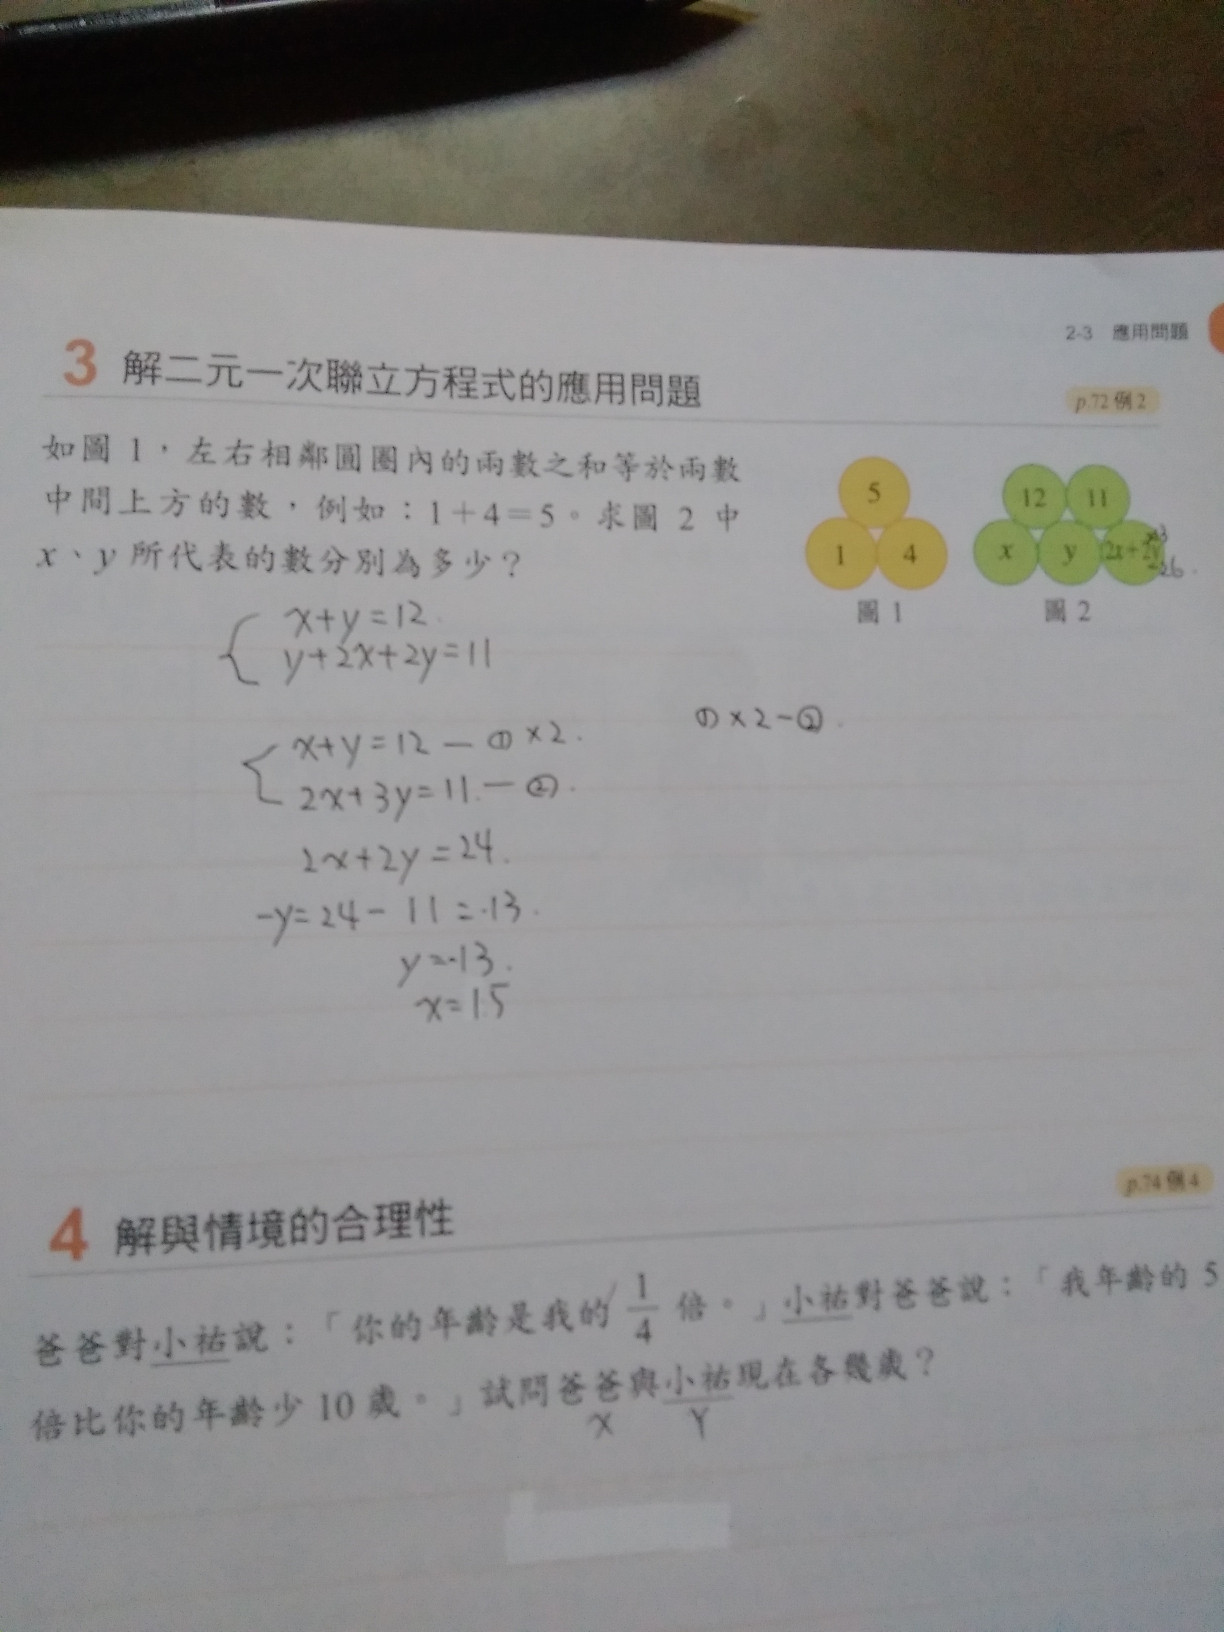 2-3 應用問題
3 解二元一次聯立方程式的應用問題
p.72 例 2
如圖 1，左右相鄰圓圈內的兩數之和等於兩數
中間上方的數，例如：1+4=5。求圖 2 中
x、y 所代表的數分別為多少？
5
1 4
圖 1
12 11
x y 2x+2y
圖 2
x+y=12.
y+2x+2y=11
x+y=12 — ① ×2.
2x+3y=11.— ②.
① ×2-② .
2x+2y=24.
-y=24- 11=13.
y=-13.
x=15
4 解與情境的合理性
p.74 例 4
爸爸對小祐說：「你的年齡是我的 1/4 倍。」小祐對爸爸說：「我年齡的 5
倍比你的年齡少 10 歲。」試問爸爸與小祐現在各幾歲？
X Y